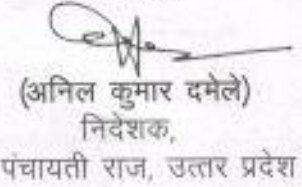 (अनिल कुमार दमेले)
निदेशक,
पंचायती राज, उत्तर प्रदेश